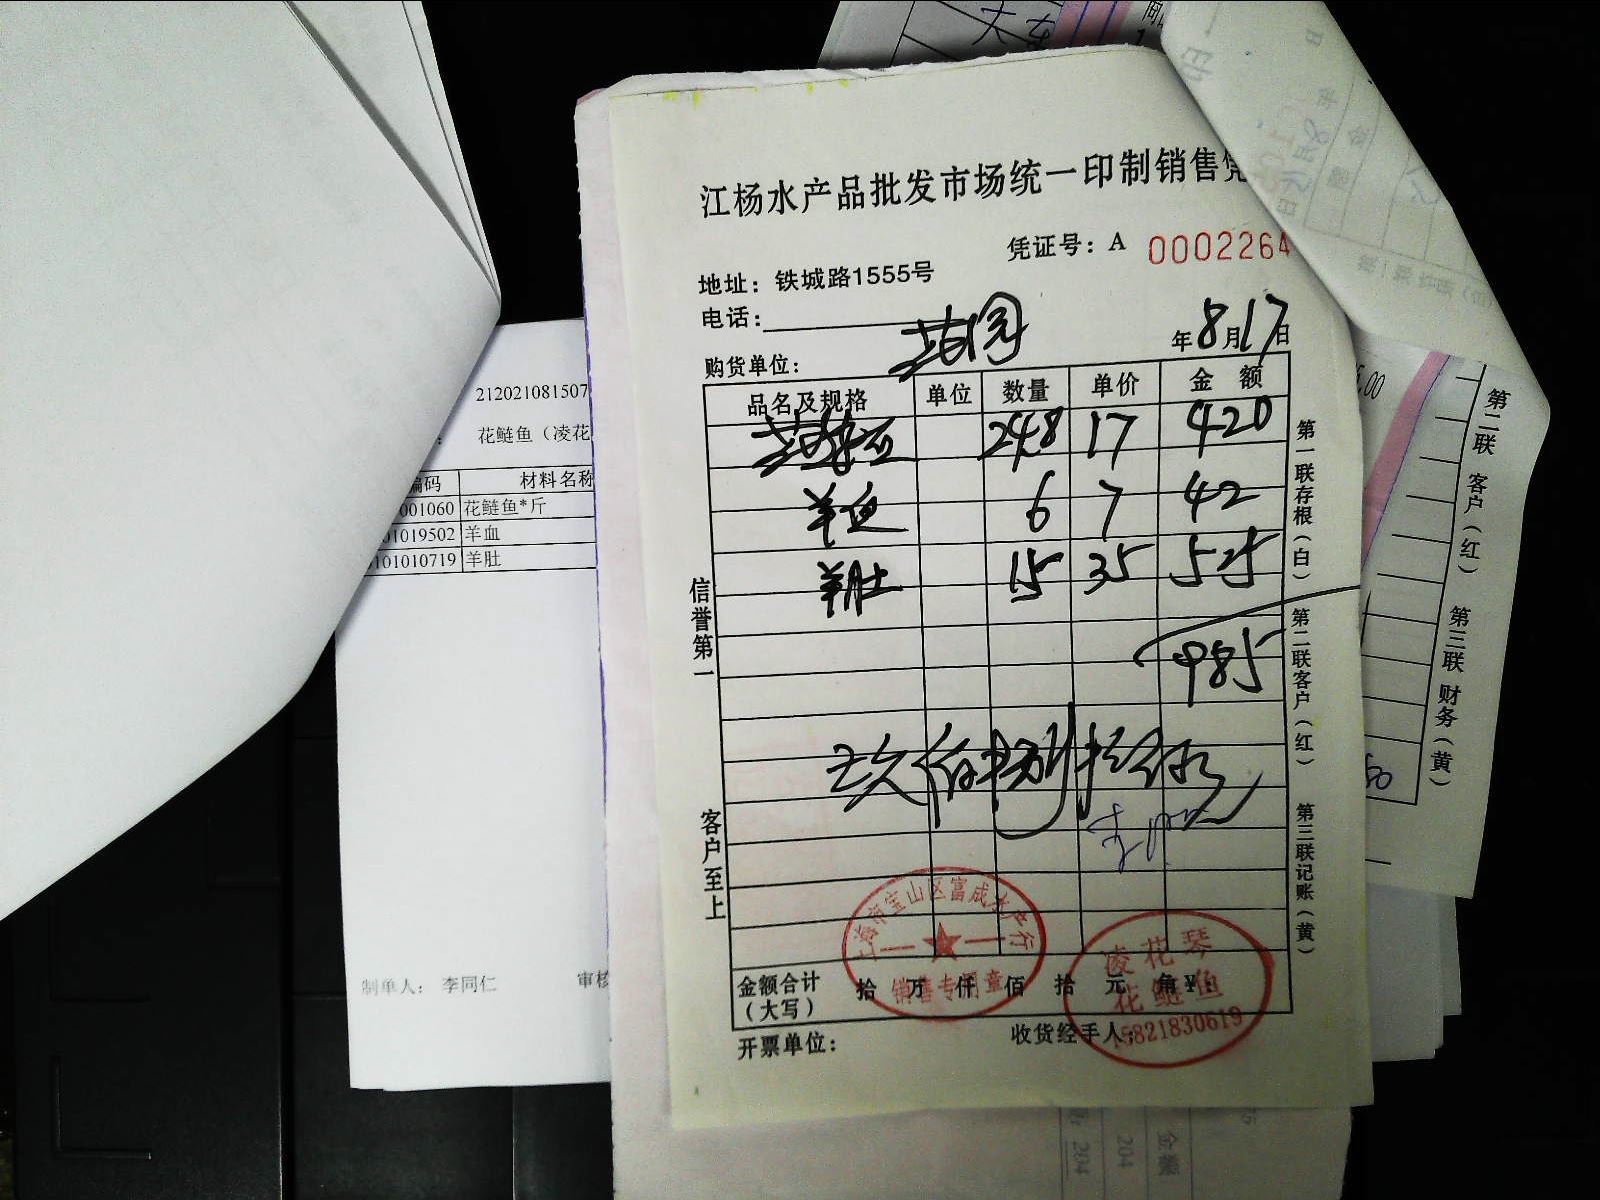 江杨水产品批发市场统一印制销售凭
凭证号：A 0002264
地址：铁城路1555号
电话：
年8月17日
购货单位：
品名及规格 单位 数量 单价 金额
24.8 17 420
羊血 6 7 42
羊肚 15 35 525
985
玖佰捌拾
金额合计（大写） 拾 万 仟 佰 拾 元 角 ¥：
开票单位： 收货经手人：
信誉第一
客户至上
第一联存根（白）
第二联客户（红）
第三联记账（黄）
上海市宝山区富成水产行
销售专用章
凌花琴
花鲢鱼
15821830619
212021081507
花鲢鱼（凌花
编码 材料名称
001060 花鲢鱼*斤
01019502 羊血
101010719 羊肚
制单人： 李同仁 审核
第二联 客户（红）
第三联 财务（黄）
5.00
50
大
204
204
金额